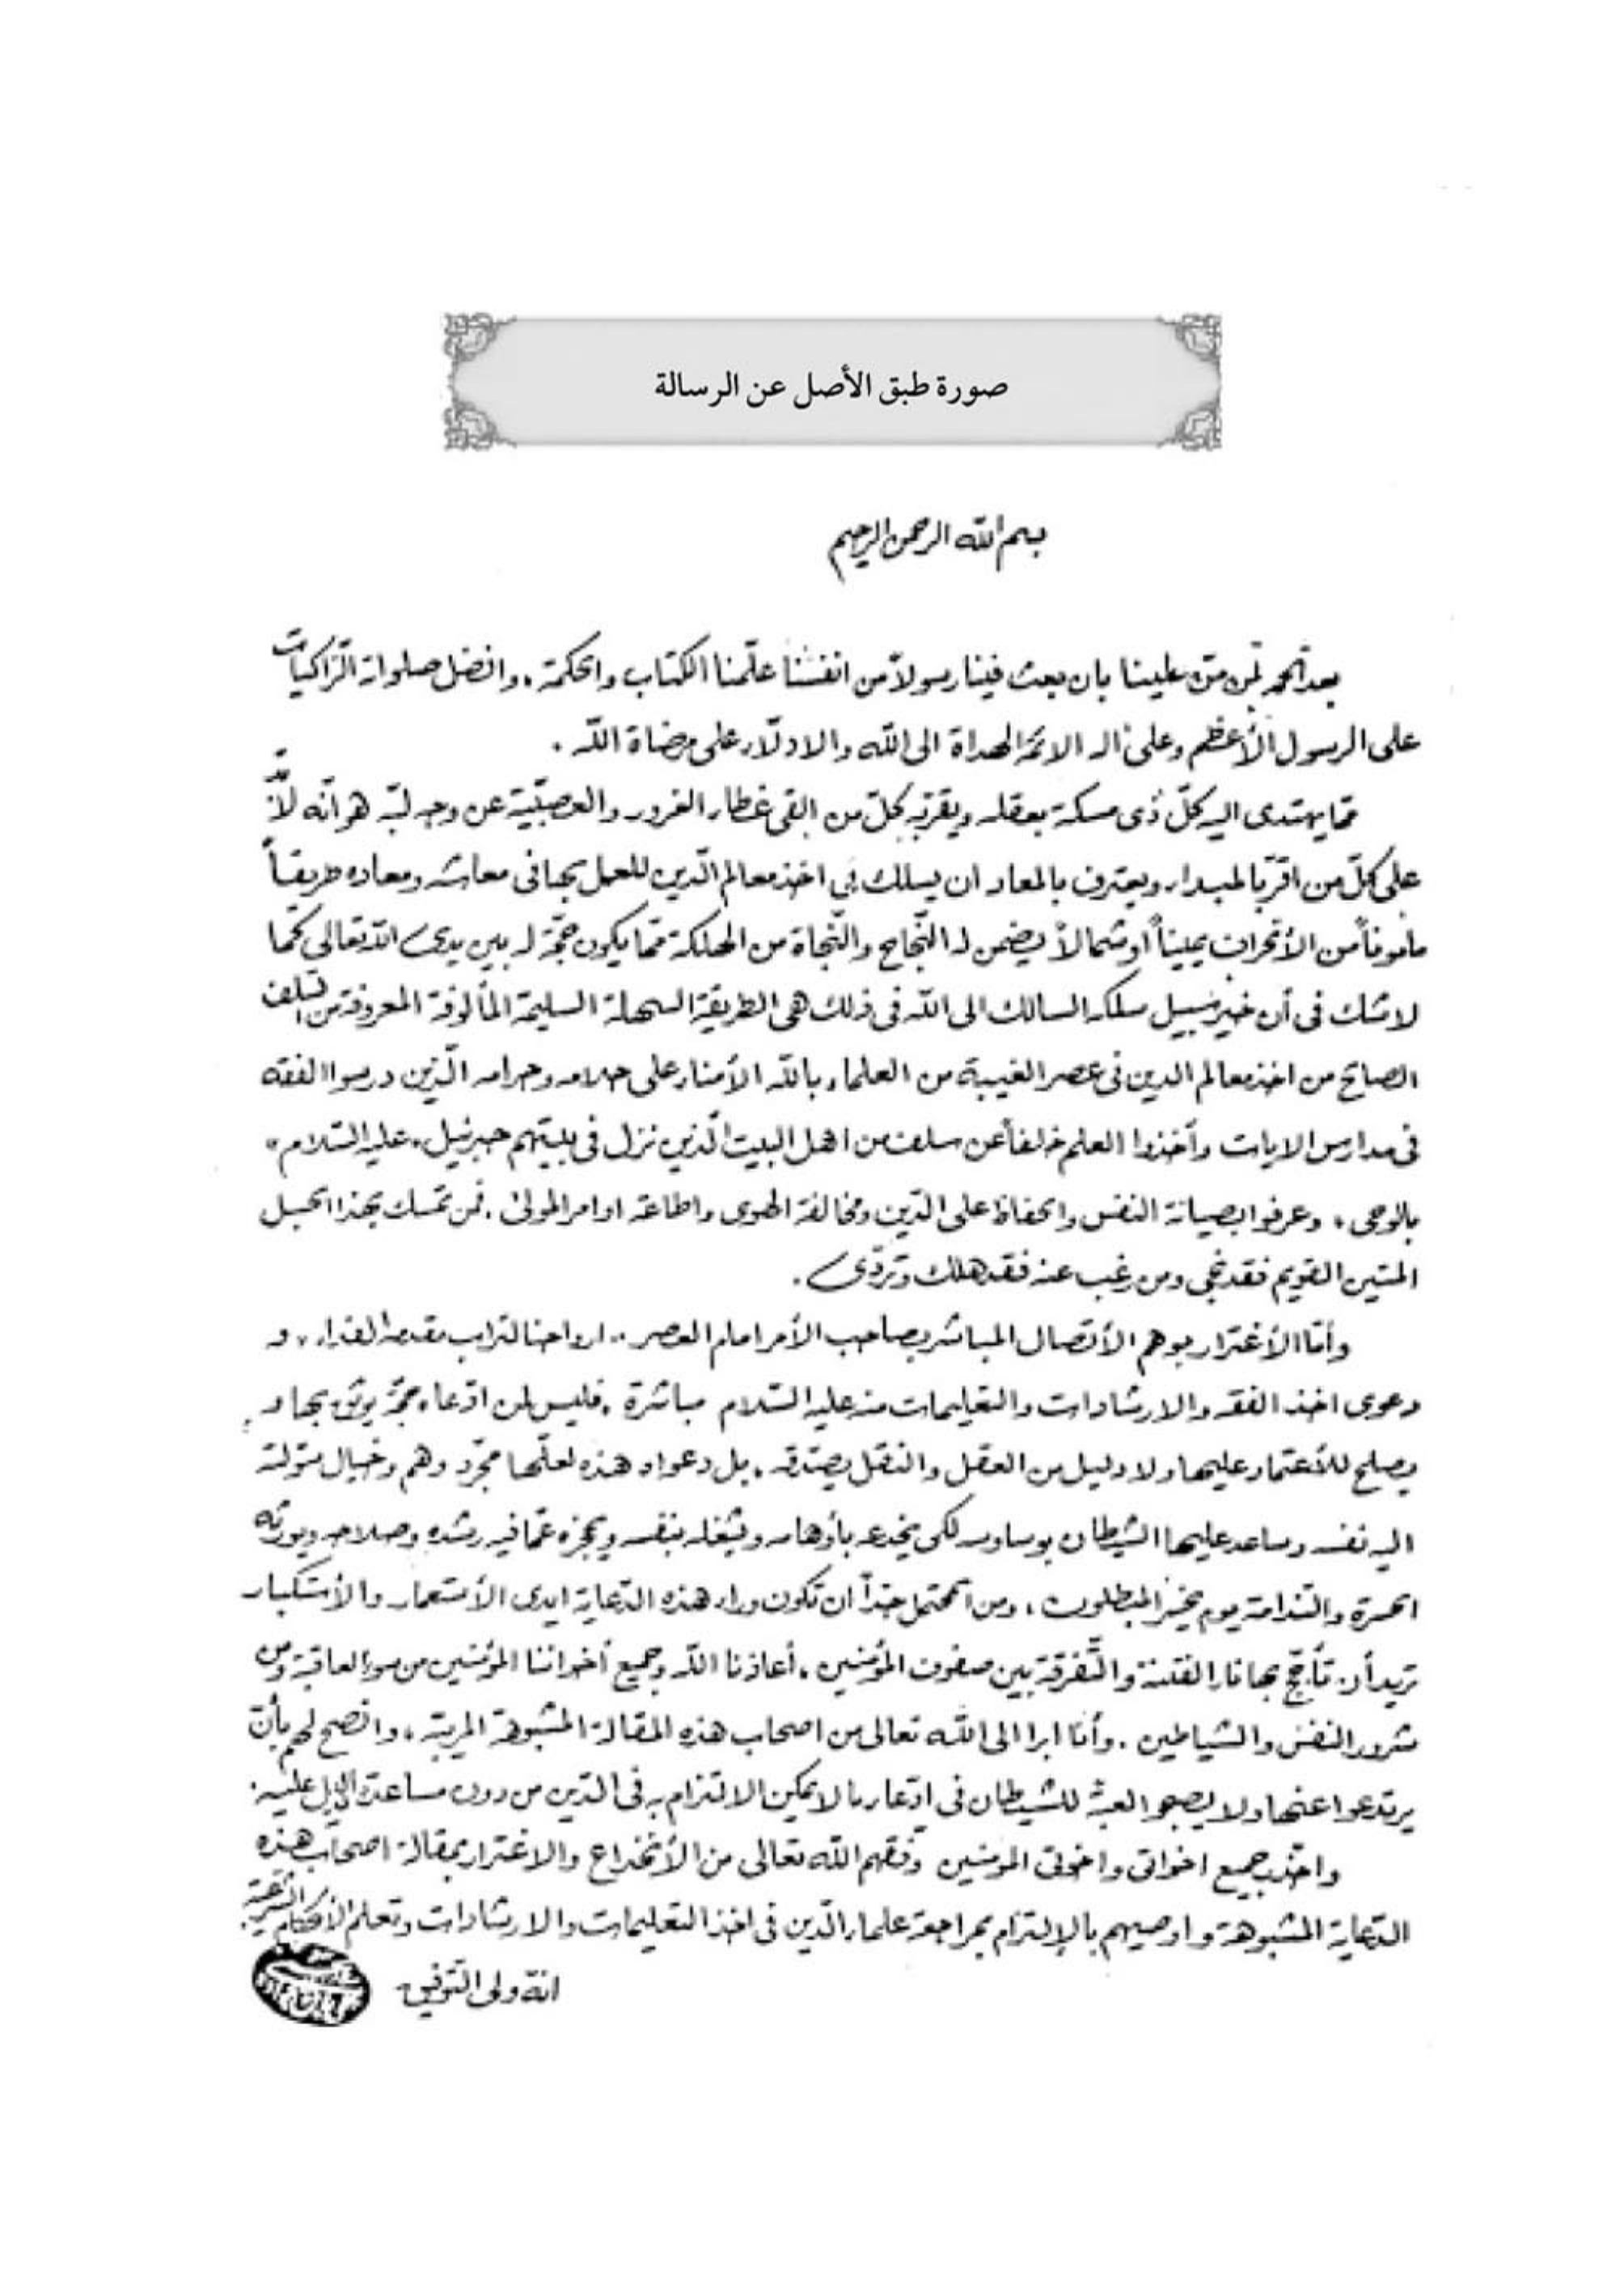 صورة طبق الأصل عن الرسالة
بسم الله الرحمن الرحيم
بعد الحمد لمن منّ علينا بان بعث فينا رسولاً من انفسنا علّمنا الكتاب والحكمة ، وافضل صلواته الزّاكيات
على الرسول الأعظم وعلى آله الائمة الهداة الى الله والادلّاء على مرضاة الله .
ممّا يهتدى اليه كلّ ذى مسكة بعقله ويقرّ به كلّ من القى غطاء الغرور والعصبيّة عن وجه لبّه هو انّه لابدّ
على كلّ من اقرّ بالمبداء ويعترف بالمعاد ان يسلك في اخذ معالم الّدين للعمل بها فى معاشه ومعاده طريقاً
مأموناً من الأنحراف يميناً او شمالاً يضمن له النّجاح والنّجاة من الهلكة ممّا يكون حجّة له بين يدى الله تعالى كما
لاشك فى أن خير سبيل سلكه السالك الى الله فى ذلك هى الطريقة السهلة السليمة المألوفة المعروفة من السلف
الصالح من اخذ معالم الدين فى عصر الغيبة من العلماء بالله الأمناء على حلاله وحرامه الّذين درسوا الفقه
فى مدارس الايات وأخذوا العلم خلفاً عن سلف من اهل البيت الّذين نزل فى بيتهم جبرئيل ، عليه السّلام ،
بالوحى ، وعرفوا بصيانة النفس والحفاظ على الدّين ومخالفة الهوى واطاعة اوامر المولى . فمن تمسك بهذا الحبل
المتين القويم فقد نجى ومن رغب عنه فقد هلك وتردّى .
وأمّا الأغترار بوهم الأتّصال المباشر بصاحب الأمر امام العصر .. ارواحنا لتراب مقدمه الفداء .. و
دعوى اخذ الفقه والارشادات والتعليمات منه عليه السّلام مباشرة ، فليس لمن ادّعاه حجّة يوثق بها و
يصلح للأعتماد عليها ولا دليل من العقل والنقل يصدّقه . بل دعواه هذه لعلّها مجرّد وهم وخيال سوّلته
اليه نفسه وساعد عليها الشيطان بوساوسه لكى يخدعه بأوهامه ويشغله بنفسه ويحجزه عمّا فيه رشده وصلاحه ويورثه
الحسرة والنّدامة يوم يخسر المبطلون ، ومن المحتمل جدّاً ان تكون وراء هذه الدّعاية ايدى الأستعمار والأستكبار
تريد أن تأجّج بها نار الفتنة والتّفرقة بين صفوف المؤمنين . أعاذنا الله وجميع أخواننا المؤمنين من سوء العاقبة ومن
شرور النفس والشياطين . وأنا ابرا الى الله تعالى من اصحاب هذه المقالة المشبوهة المريبة ، وانصح لهم بأن
يرتدعوا عنها ولا يصبحوا العبة للشيطان فى ادّعاء ما لا يمكن الالتزام به فى الدّين من دون مساعدة الدليل عليه .
واحذّر جميع اخوانى واخوتى المومنين وفّقهم الله تعالى من الأنخداع والاغترار بمقالة اصحاب هذه
الدّعاية المشبوهة واوصيهم بالإلتزام بمراجعة علماء الدّين فى اخذ التعليمات والارشادات وتعلم الأحكام الشرعية .
انّه ولى التّوفيق